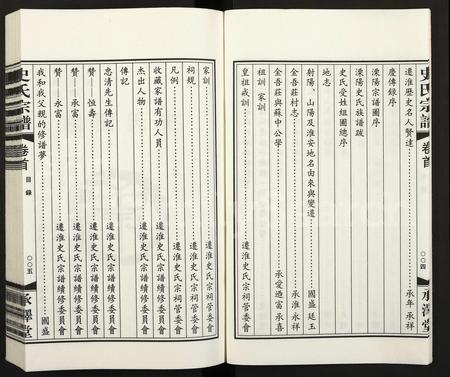 史氏宗譜 卷首
〇〇四
承澤堂
遷淮歷史名人賢達……承年 承祥
慶傳錄序
溧陽宗譜圖序
溧陽史氏族譜跋
史氏受姓組圖總序
地志
射陽、山陽及淮安地名由來與變遷……國盛 廷玉
金吾莊村志……承淮 永祥
金吾莊與蘇中公學……承愛 迺富 承喜
祖訓 家訓
皇祖戒訓
家訓……遷淮史氏宗祠管委會
祠規……遷淮史氏宗祠管委會
凡例……遷淮史氏宗祠管委會
收藏家譜有功人員……遷淮史氏宗譜續修委員會
杰出人物……遷淮史氏宗譜續修委員會
傳記
忠清先生傳記……遷淮史氏宗譜續修委員會
贊——恒壽……遷淮史氏宗譜續修委員會
贊——承富……遷淮史氏宗譜續修委員會
贊——永富……遷淮史氏宗譜續修委員會
我和我父親的修譜夢……國盛
史氏宗譜 卷首 目錄
〇〇五
承澤堂